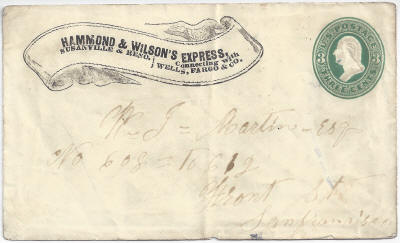 HAMMOND & WILSON'S EXPRESS,
SUSANVILLE & RENO. Connecting with
WELLS, FARGO & CO.
U.S. POSTAGE
THREE CENTS
W. J. Esq
No 608 To 612
Front St.
San Francisco